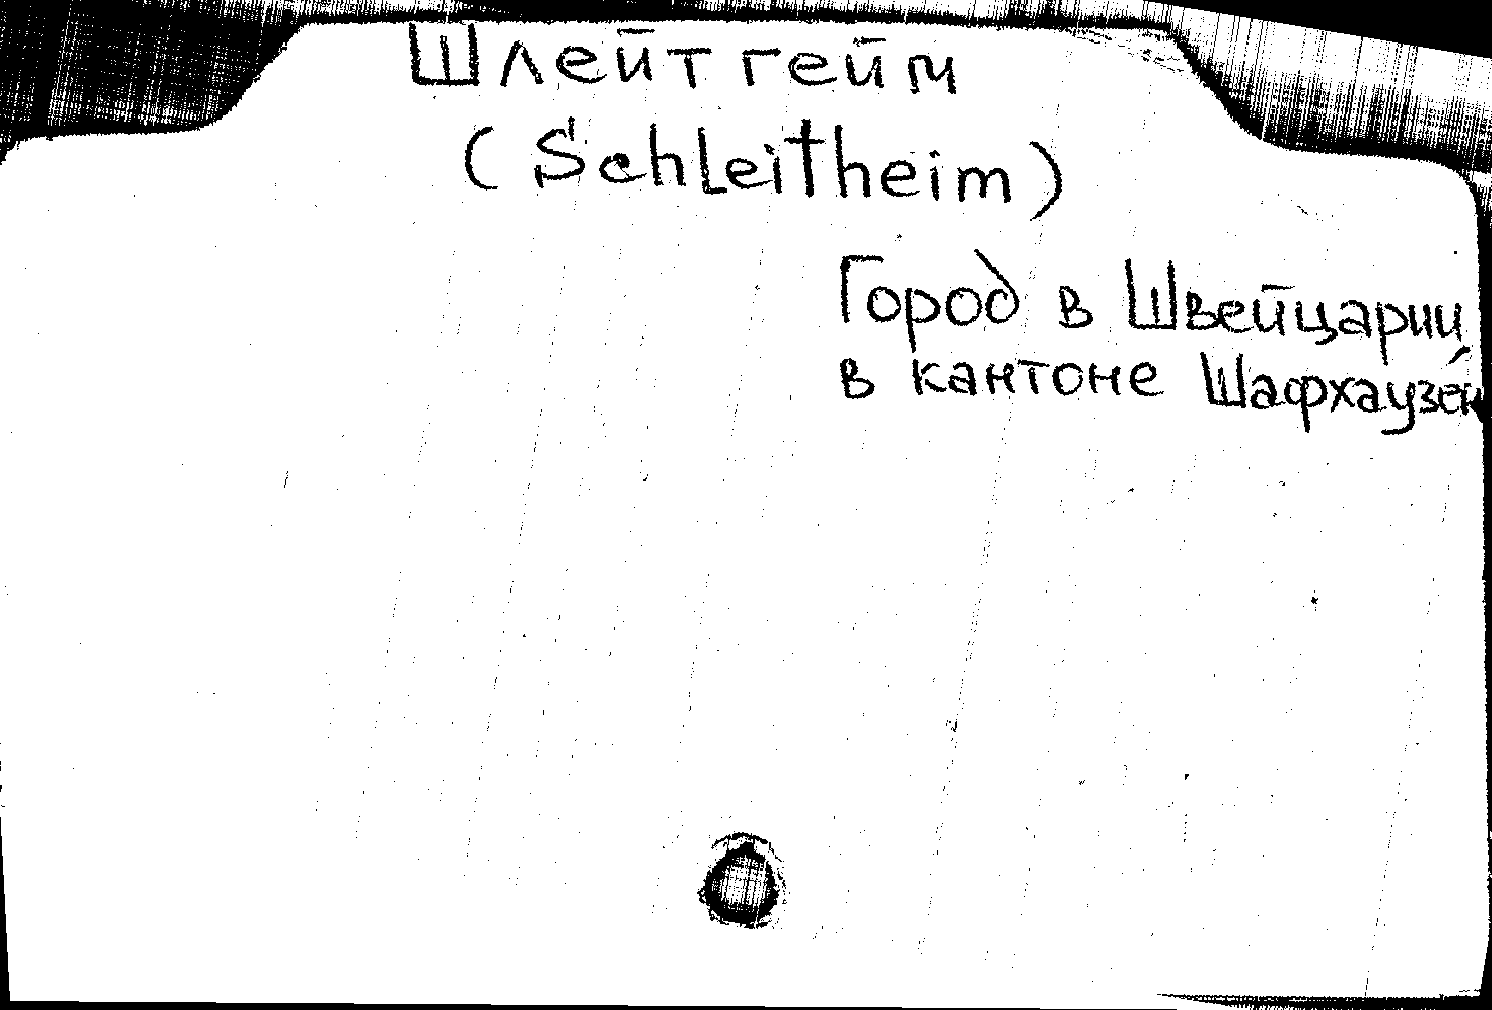 Шлейтгейм
(Schleitheim)
Город в Швейцарии
в кантоне Шафхаузен